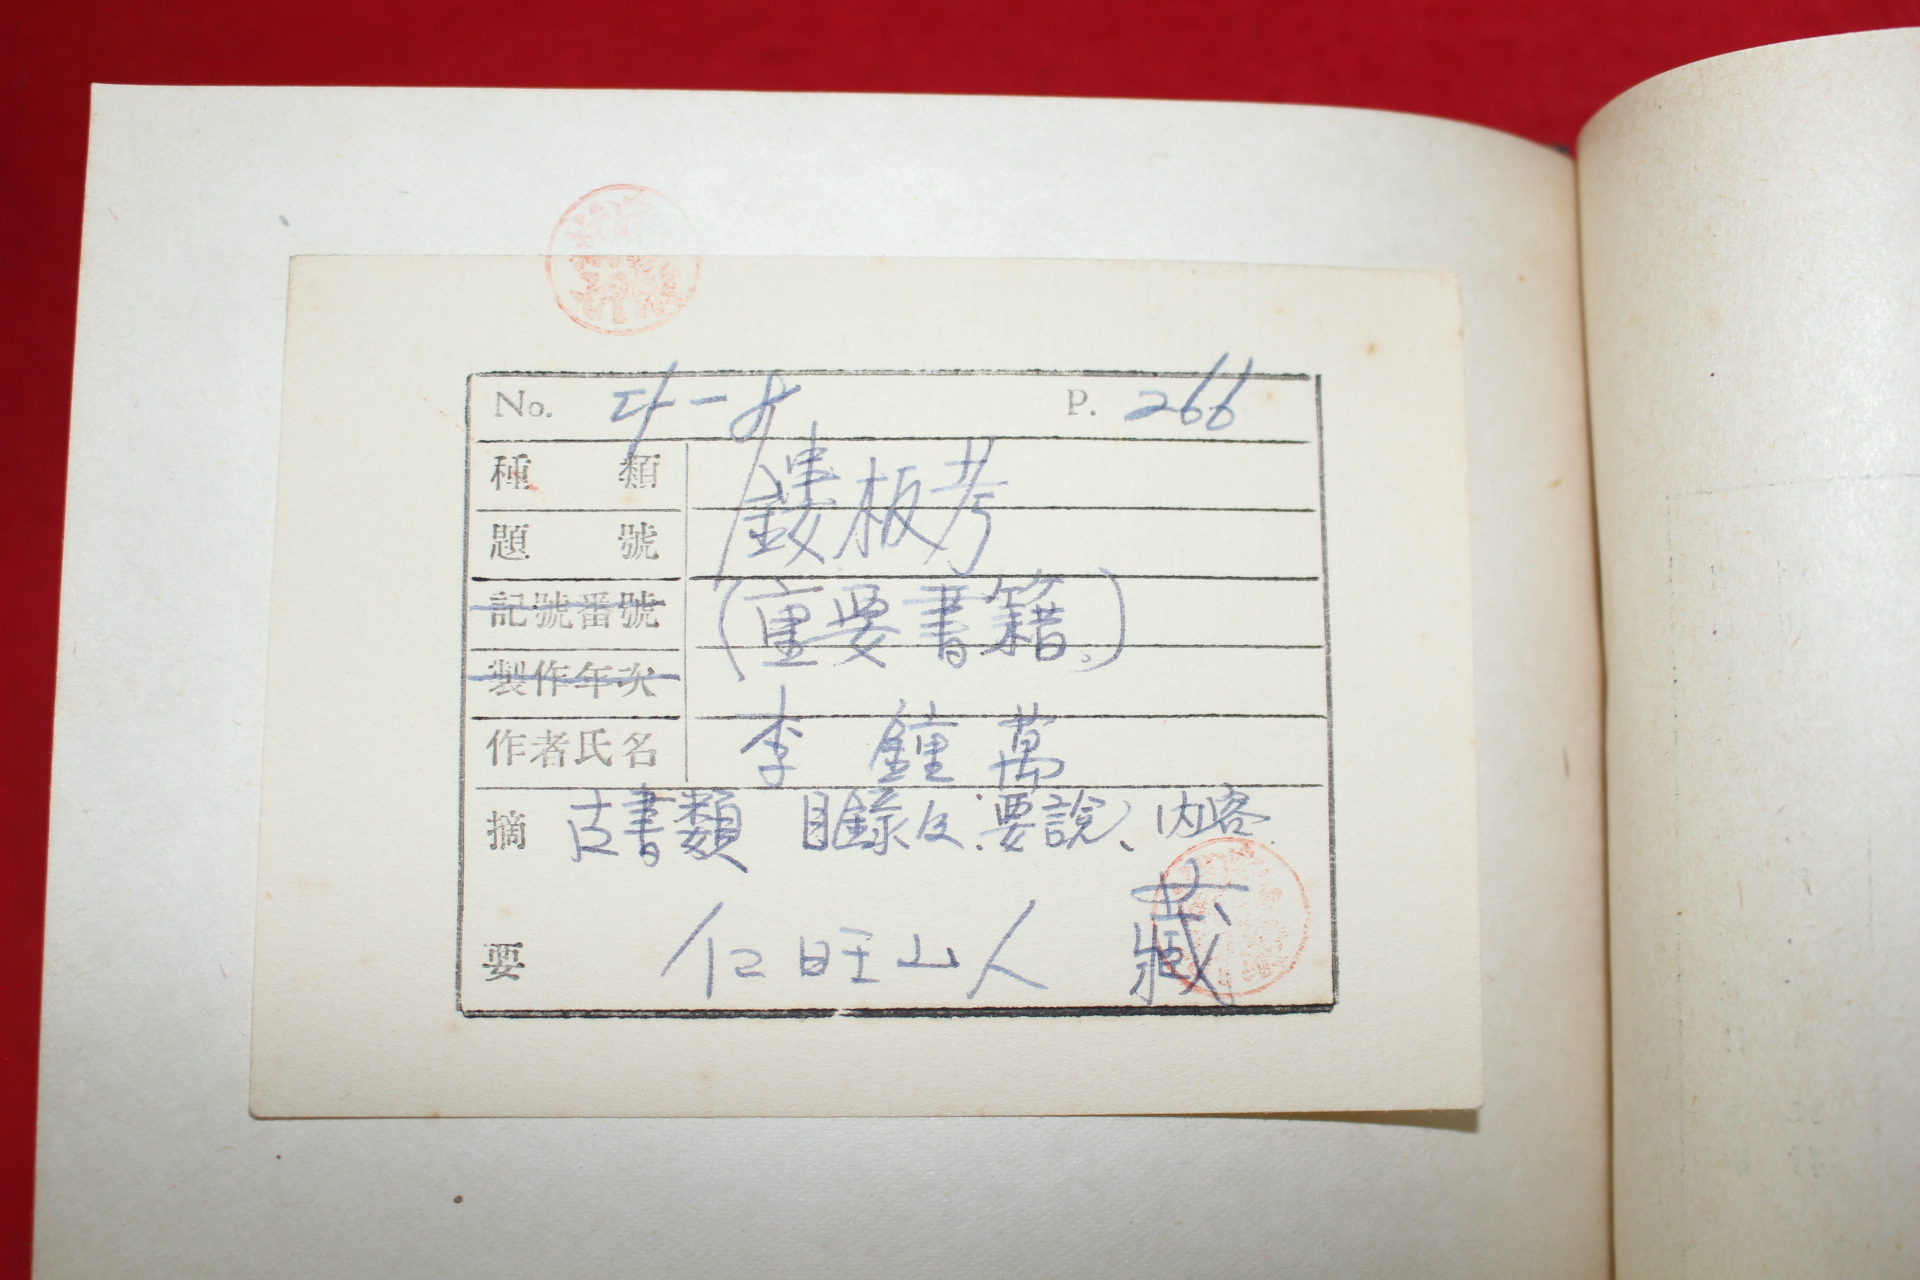 No. 4-8 P. 266
種類 鏤板考
題號
記號番號 (重要書籍。)
製作年次
作者氏名 李鍾萬
摘 古書類 目錄及 要說、內容
要 仁旺山人 藏